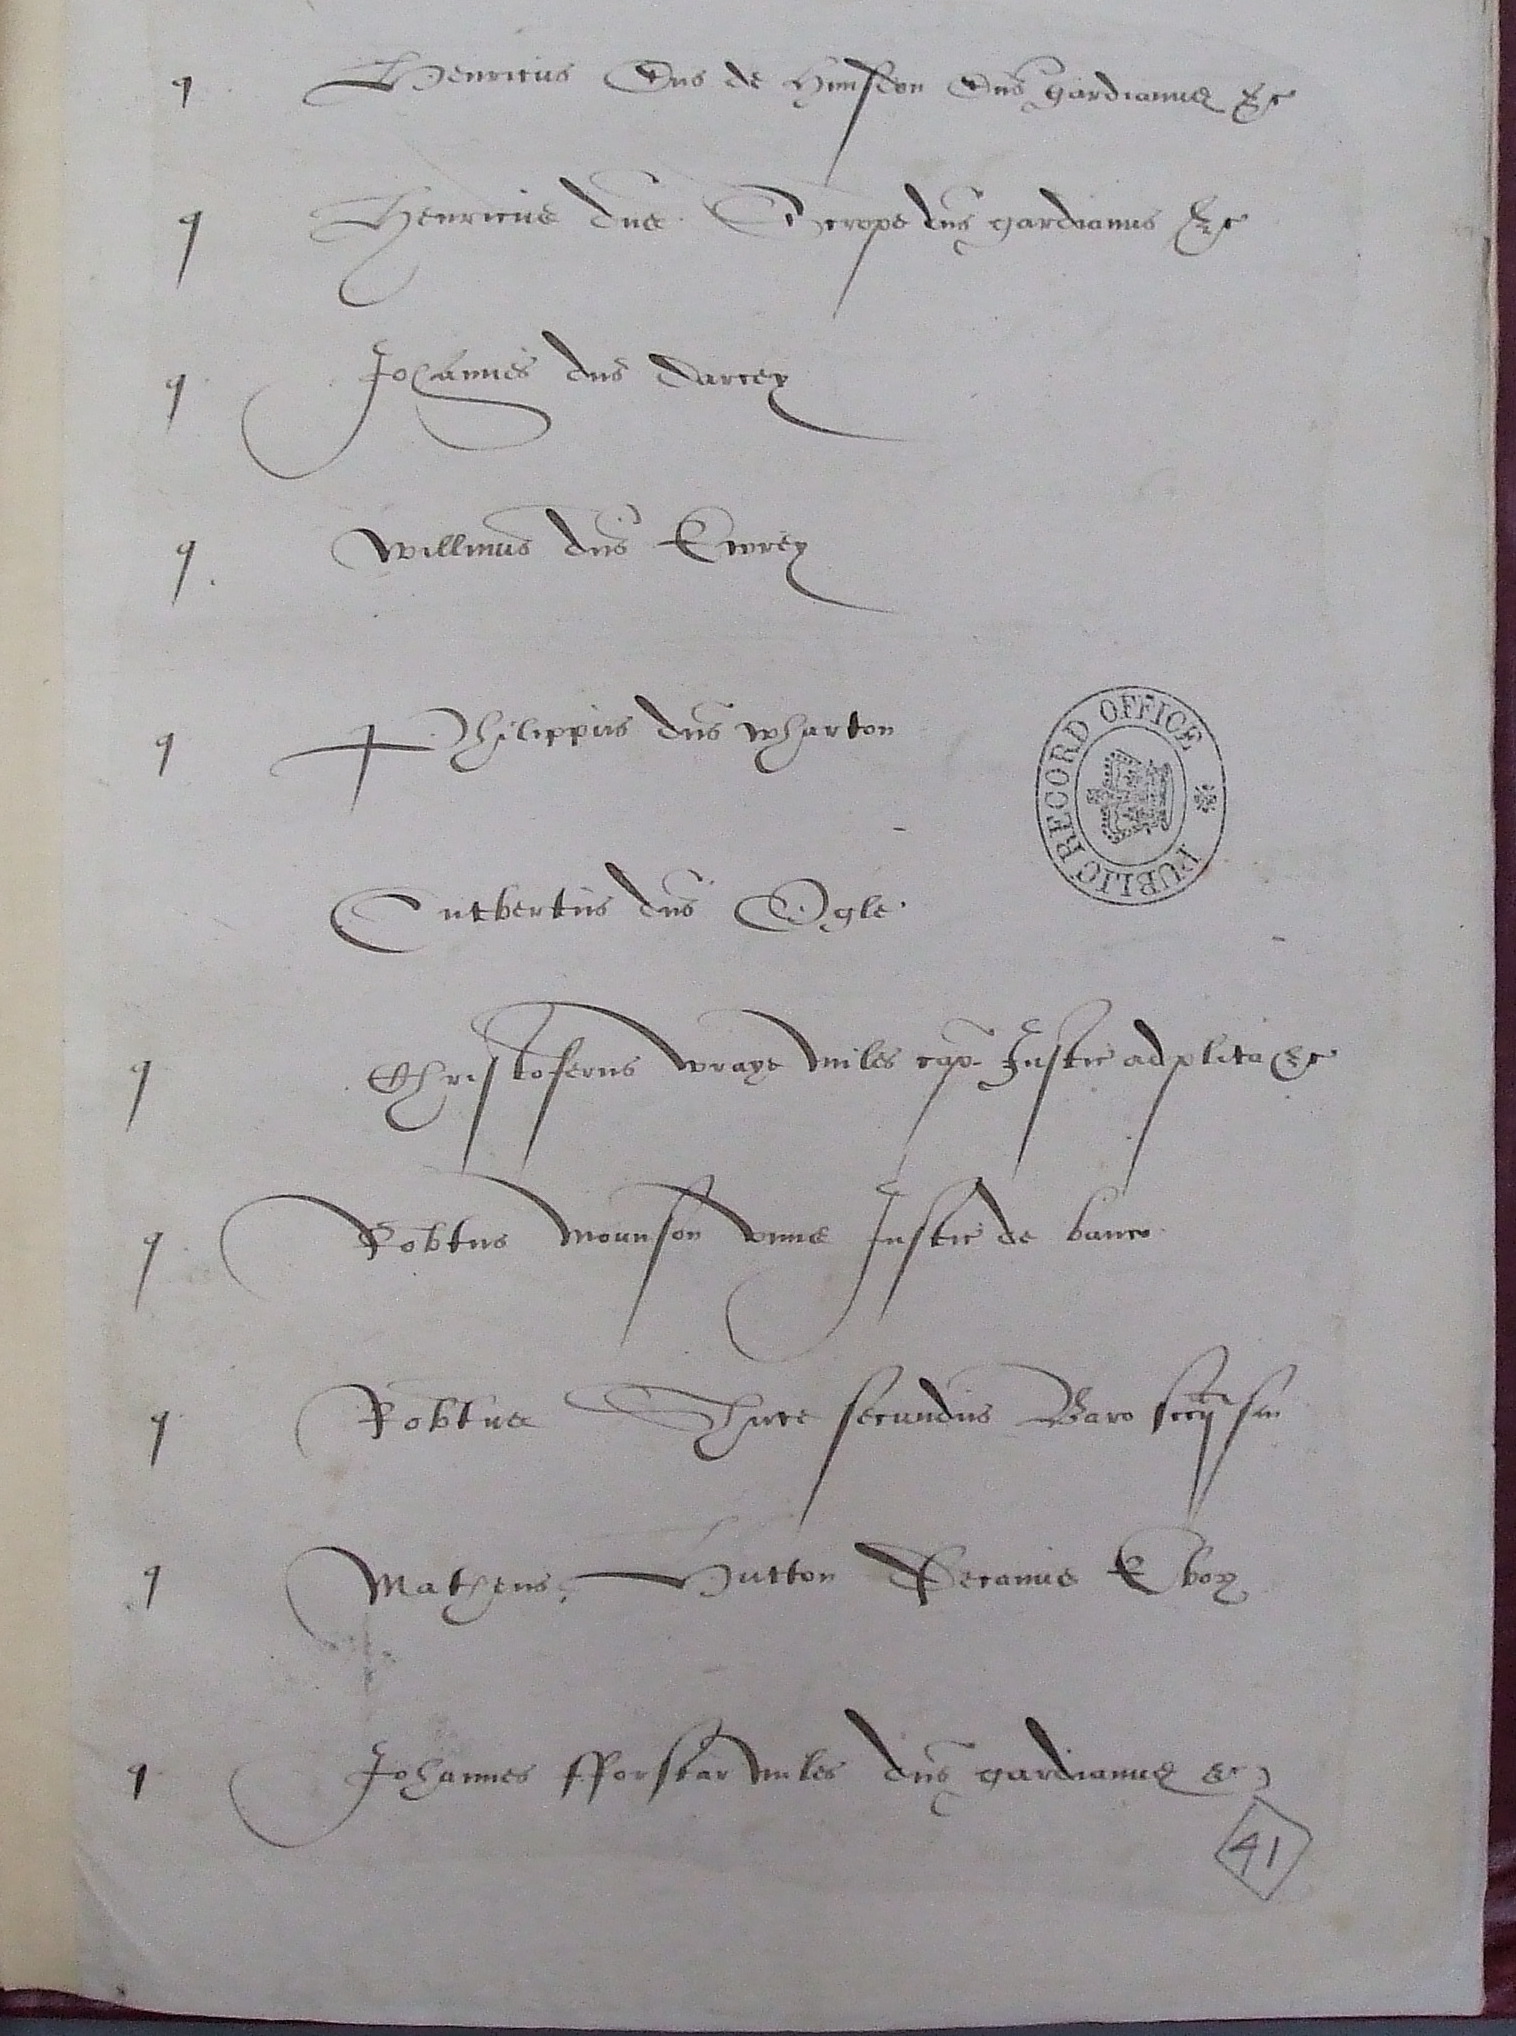 q Henricus Dns de Hunsdon Dns gardianus &c
q Henricus dns Scrope dns gardianus &c
q Johannes dns Darcey
q Willmus dns Ewrey
q Philippus dns Wharton
Cutbertus dns Ogle
q Christoferus Wraye miles cap Justic ad plita &c
q Robtus Mounson unus Justic de banco
q Robtus Shute secundus Baro sccij
q Matheus Hutton Decanus Ebor
q Johannes fforstar miles dns gardianus &c
41
PUBLIC RECORD OFFICE